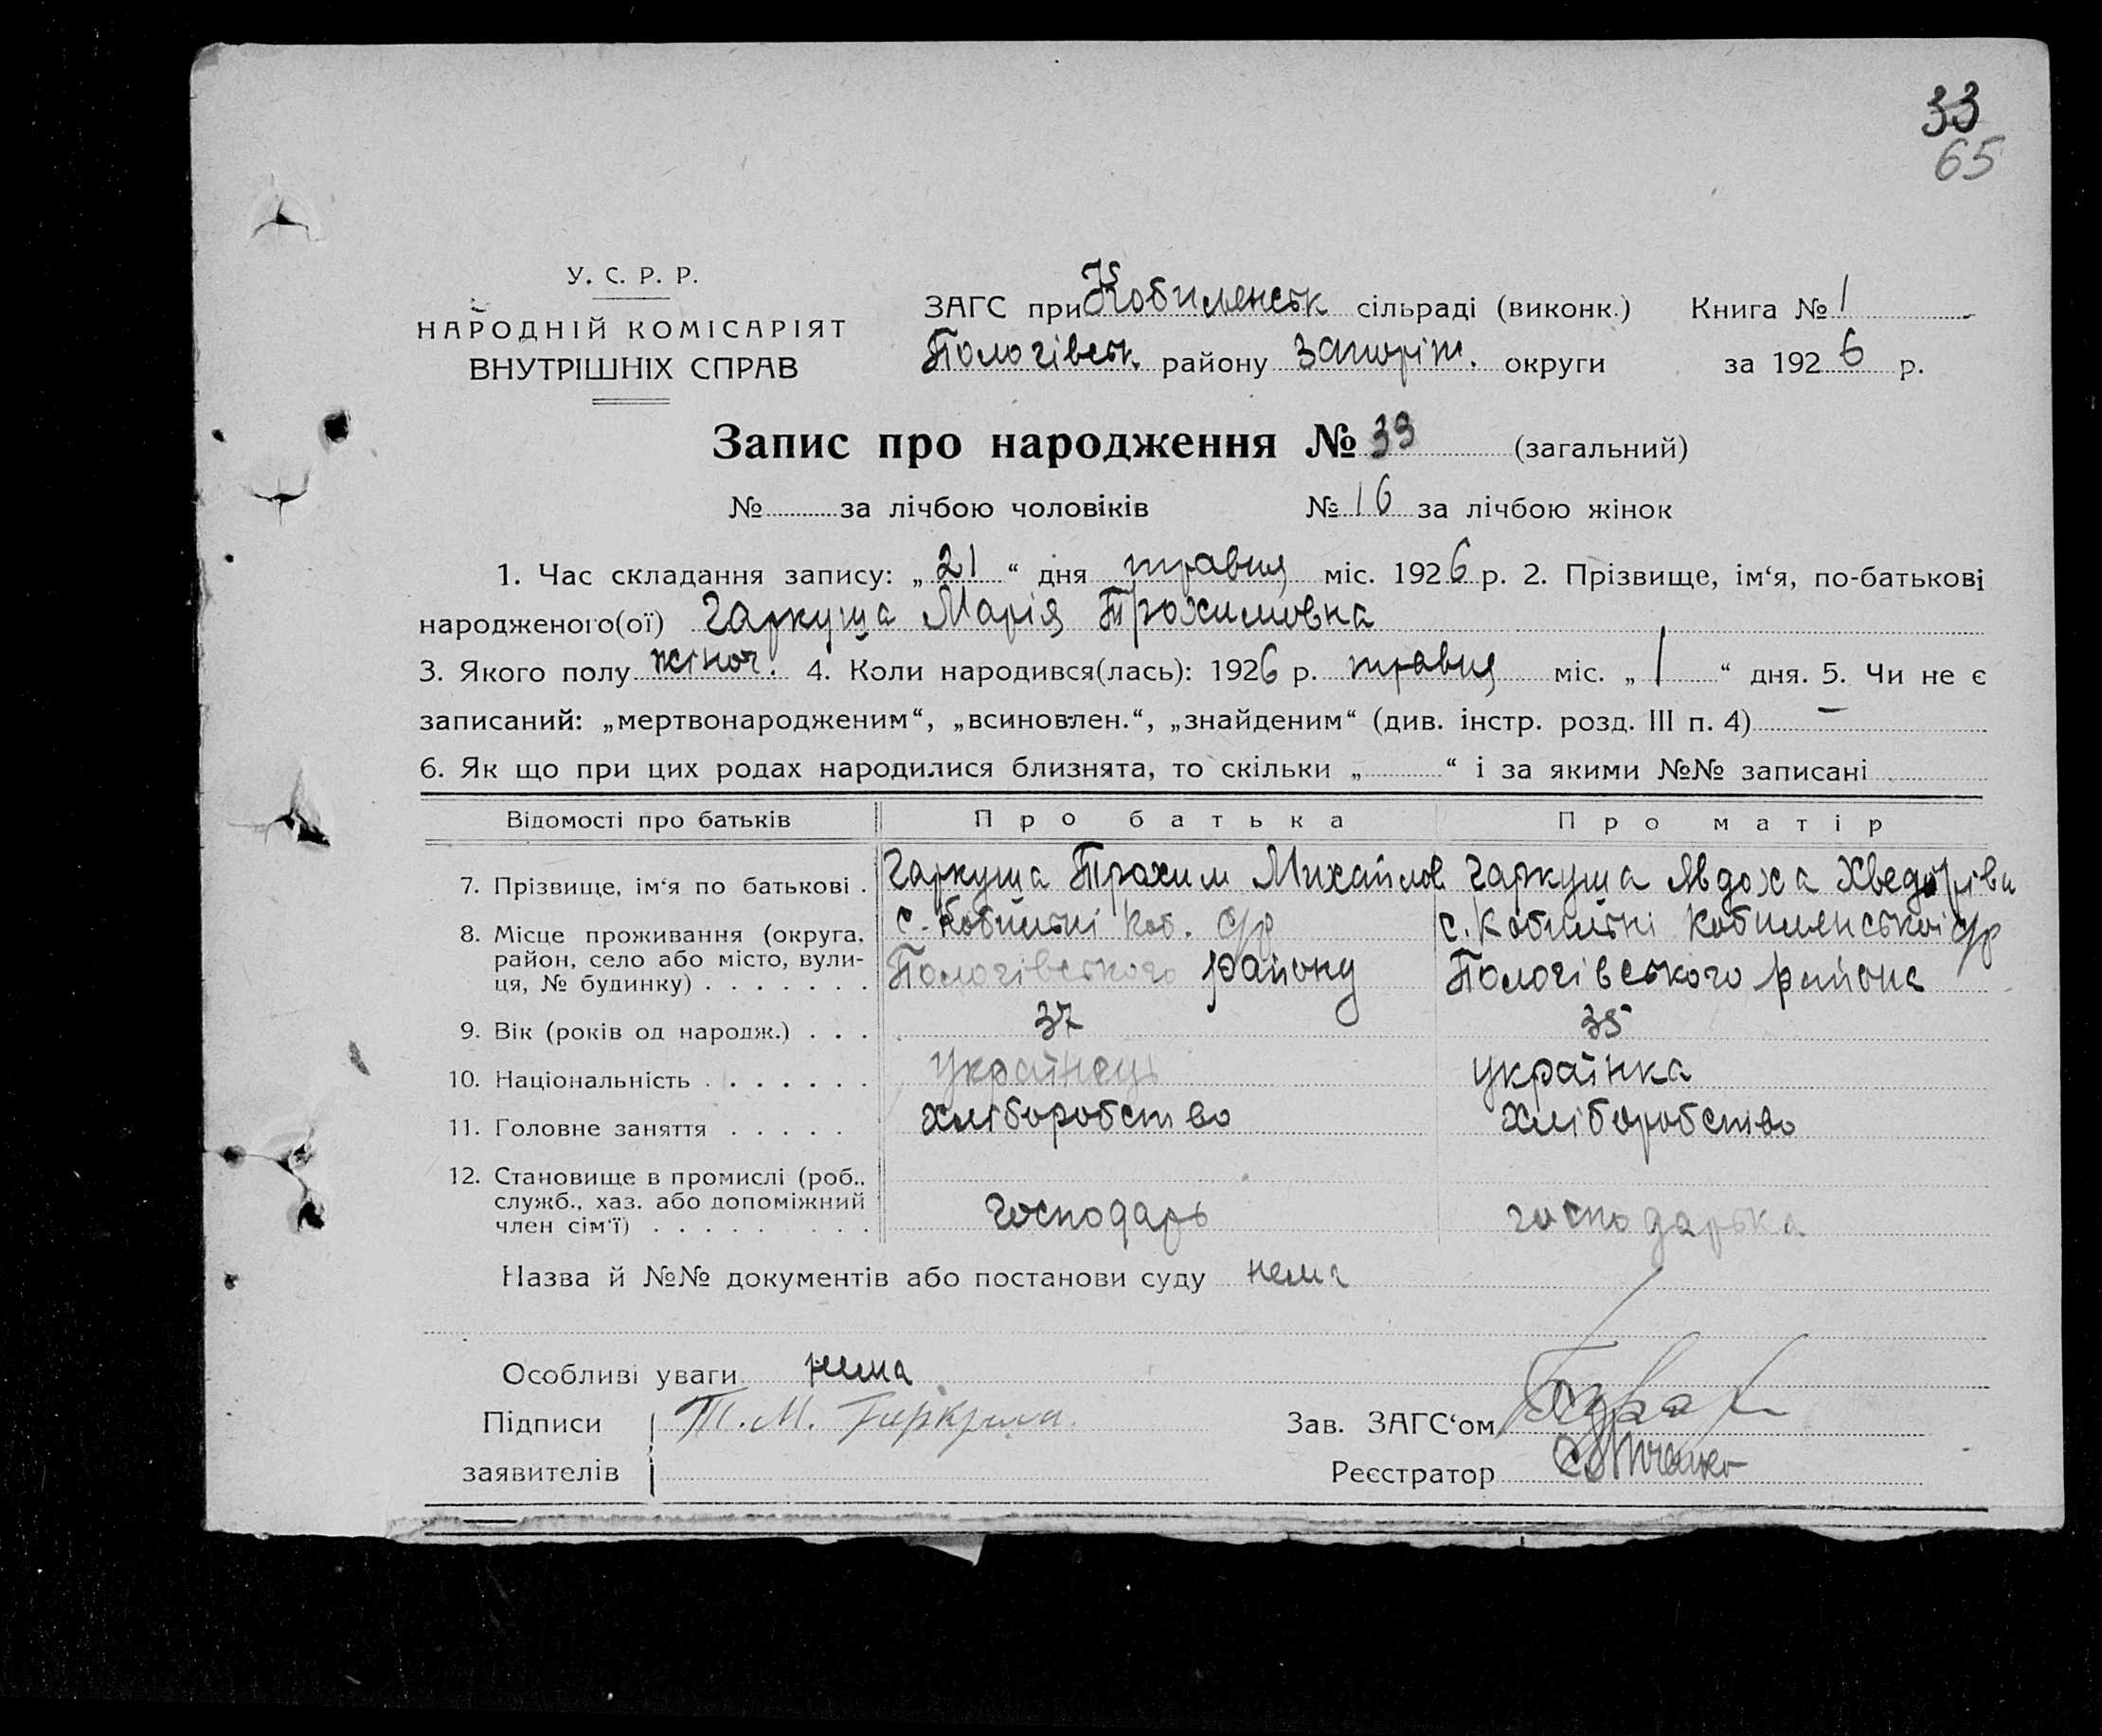 33
65
У. С. Р. Р.
НАРОДНІЙ КОМІСАРІЯТ
ВНУТРІШНІХ СПРАВ
ЗАГС при Кобилянськ сільраді (виконк.) Книга № 1
Пологівськ. району Запоріж. округи за 1926 р.
Запис про народження № 33 (загальний)
№ за лічбою чоловіків № 16 за лічбою жінок
1. Час складання запису: „21“ дня травня міс. 1926 р. 2. Прізвище, ім‘я, по-батькові
народженого(ої) Гаркуша Марія Трохимовна
3. Якого полу жіноч. 4. Коли народився(лась): 1926 р. травня міс. „1“ дня. 5. Чи не є
записаний: „мертвонародженим“, „всиновлен.“, „знайденим“ (див. інстр. розд. III п. 4) –
6. Як що при цих родах народилися близнята, то скільки „ “ і за якими №№ записані
Відомості про батьків Про батька Про матір
7. Прізвище, ім‘я по батькові . Гаркуша Трохим Михайлов Гаркуша Явдоха Хведорівн
8. Місце проживання (округа, с. Кобильні Коб. с/р с. Кобильні Кобилянської с/р
район, село або місто, вули-
ця, № будинку) . . . . . . . Пологівського району Пологівського района
9. Вік (років од народж.) . . . 37 35
10. Національність . . . . . . . Українець Українка
11. Головне заняття . . . . . хліборобство хліборобство
12. Становище в промислі (роб.,
служб., хаз. або допоміжний
член сім‘ї) . . . . . . . . господарь господарька
Назва й №№ документів або постанови суду нема
Особливі уваги нема
Підписи Т. М. Гаркуша. Зав. ЗАГС‘ом
заявителів Реєстратор